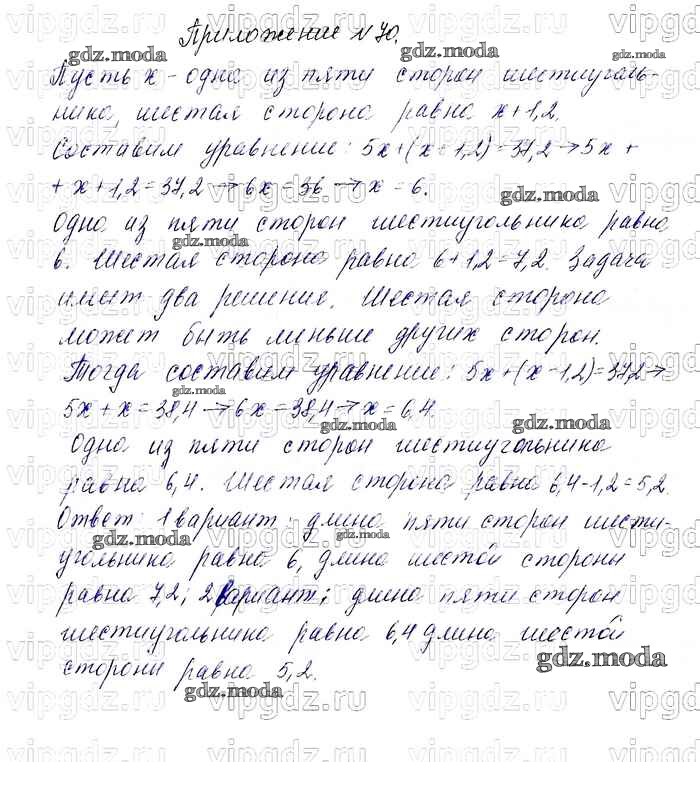 Приложение №70.
Пусть x - одна из пяти сторон шестиуголь-
ника, шестая сторона равна x+1,2.
Составим уравнение: 5x+(x+1,2)=37,2→5x+
+x+1,2=37,2→6x=36→x=6.
Одна из пяти сторон шестиугольника равна
6. Шестая сторона равна 6+1,2=7,2. Задача
имеет два решение. Шестая сторона
может быть меньше других сторон.
Тогда составим уравнение: 5x+(x-1,2)=37,2→
5x+x=38,4→6x=38,4→x=6,4.
Одна из пяти сторон шестиугольника
равна 6,4. Шестая сторона равна 6,4-1,2=5,2.
Ответ: 1 вариант: длина пяти сторон шести-
угольника равна 6, длина шестой стороны
равна 7,2; 2 вариант: длина пяти сторон
шестиугольника равна 6,4 длина шестой
стороны равна 5,2.
gdz.moda
vipgdz.ru